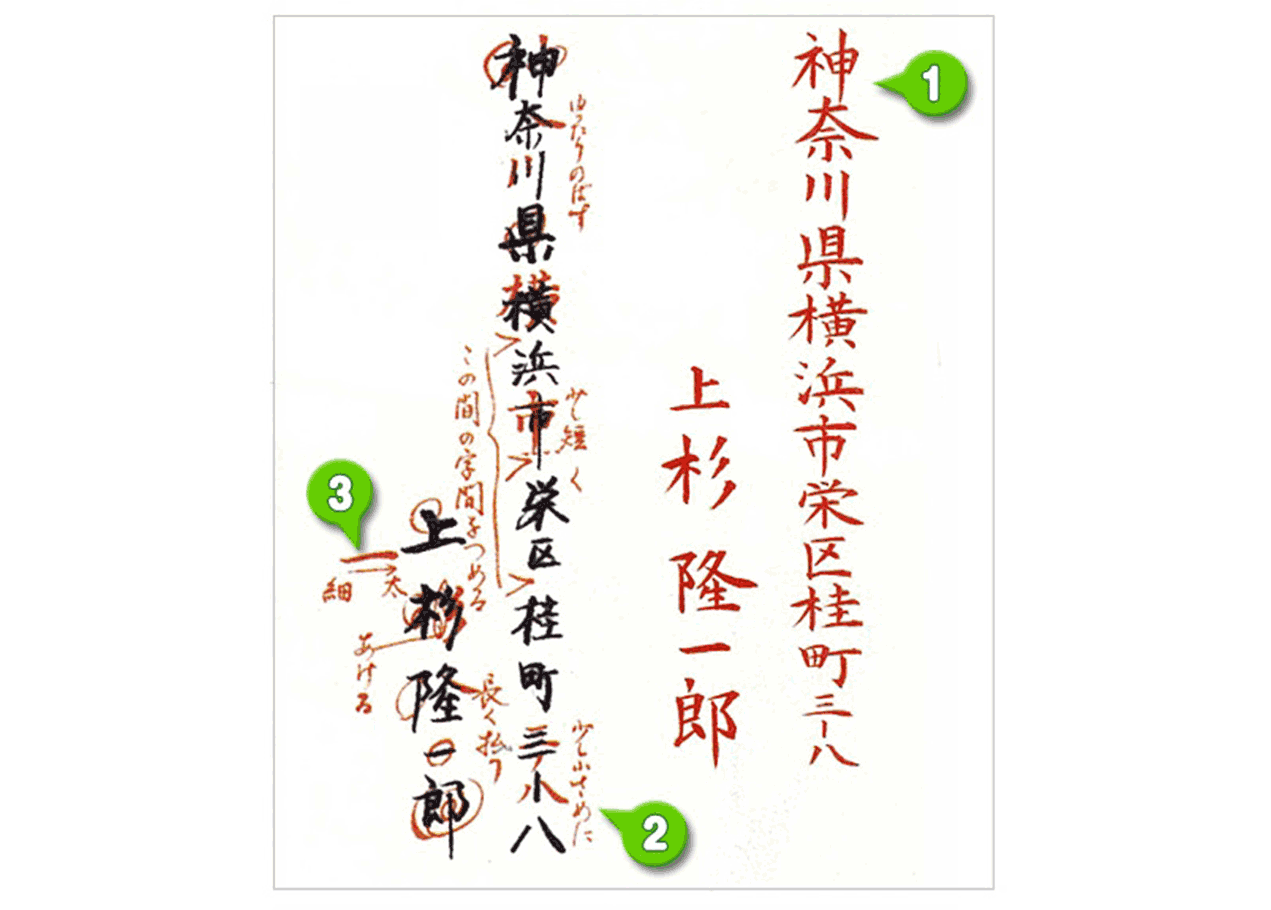 神奈川県横浜市栄区桂町三-八
1
上杉隆一郎
ゆったりのばす
神奈川県横浜市栄区桂町三-八
少し短く
少し小さめに
2
この間の字間をつめる
上杉隆一郎
長く払う
3
細
太
あける